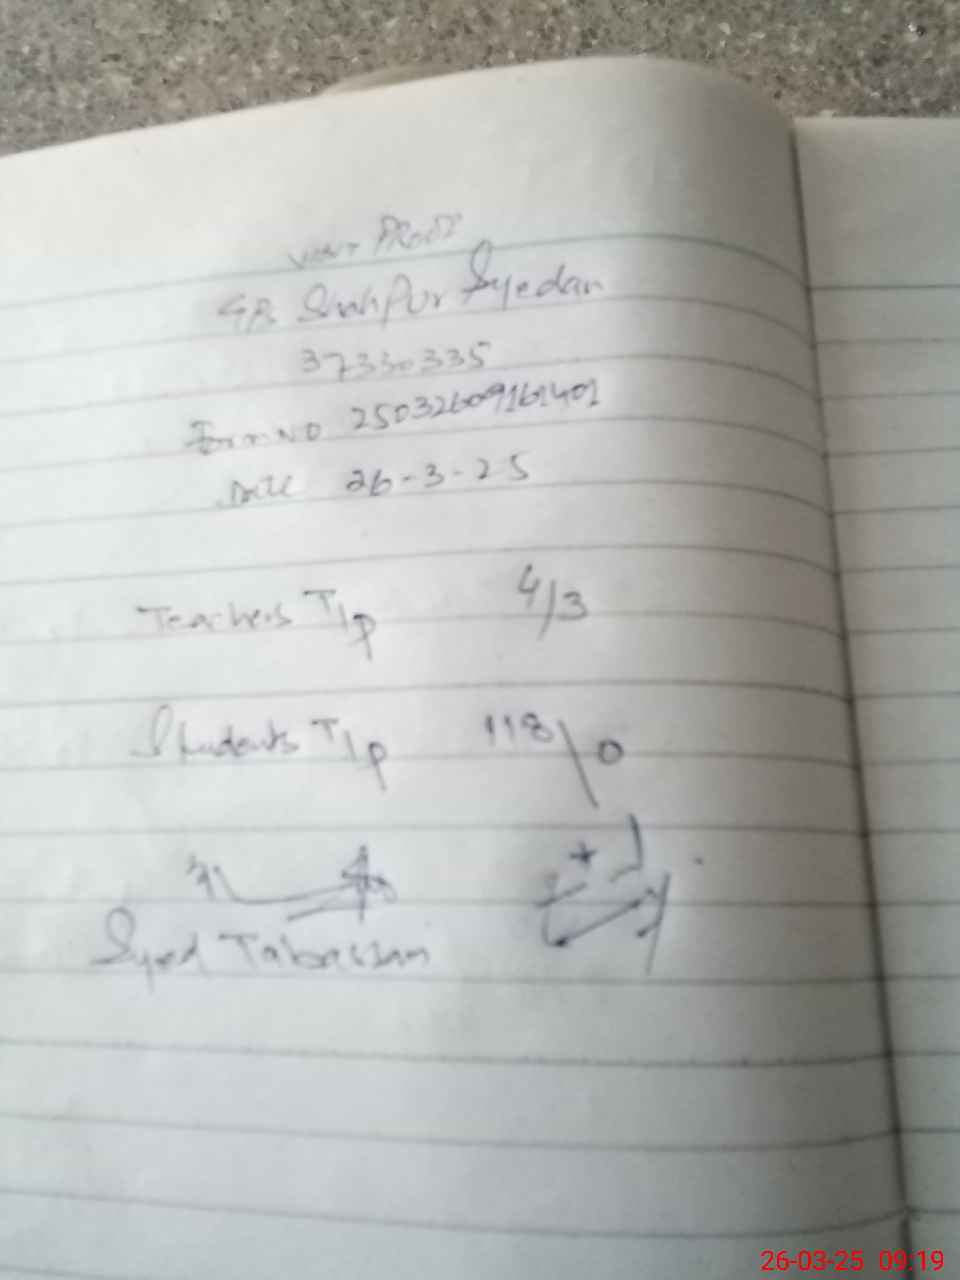 Visit PROOF
Shahpur Syedan
37330335
Form NO 25032609161401
Date 26-3-25
Teachers T/p 4/3
Students T/p 118\0
Syed Tabassam
26-03-25 09:19